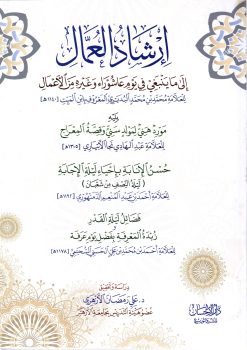 إرشاد العمال
إلى ما ينبغي في يوم عاشوراء وغيره من الأعمال
للعلامة محمد بن محمد البديري المعروف بابن الميت [١١٤٠هـ]
ويليه
مورد هني لمولد سني وقصة المعراج
للعلامة عبد الهادي نجا الأبياري [١٣٠٥هـ]
حسن الإنابة بإحياء ليلة الإجابة
(ليلة النصف من شعبان)
للعلامة أحمد بن عبد المنعم الدمنهوري [١١٩٢هـ]
فضائل ليلة القدر
زبدة المعرفة بفضل يوم عرفة
للعلامة أحمد بن محمد بن علي الحسني السحيمي [١١٧٨هـ]
دراسة وتحقيق
د. علي رمضان الأزهري
عضو هيئة التدريس بجامعة الأزهر